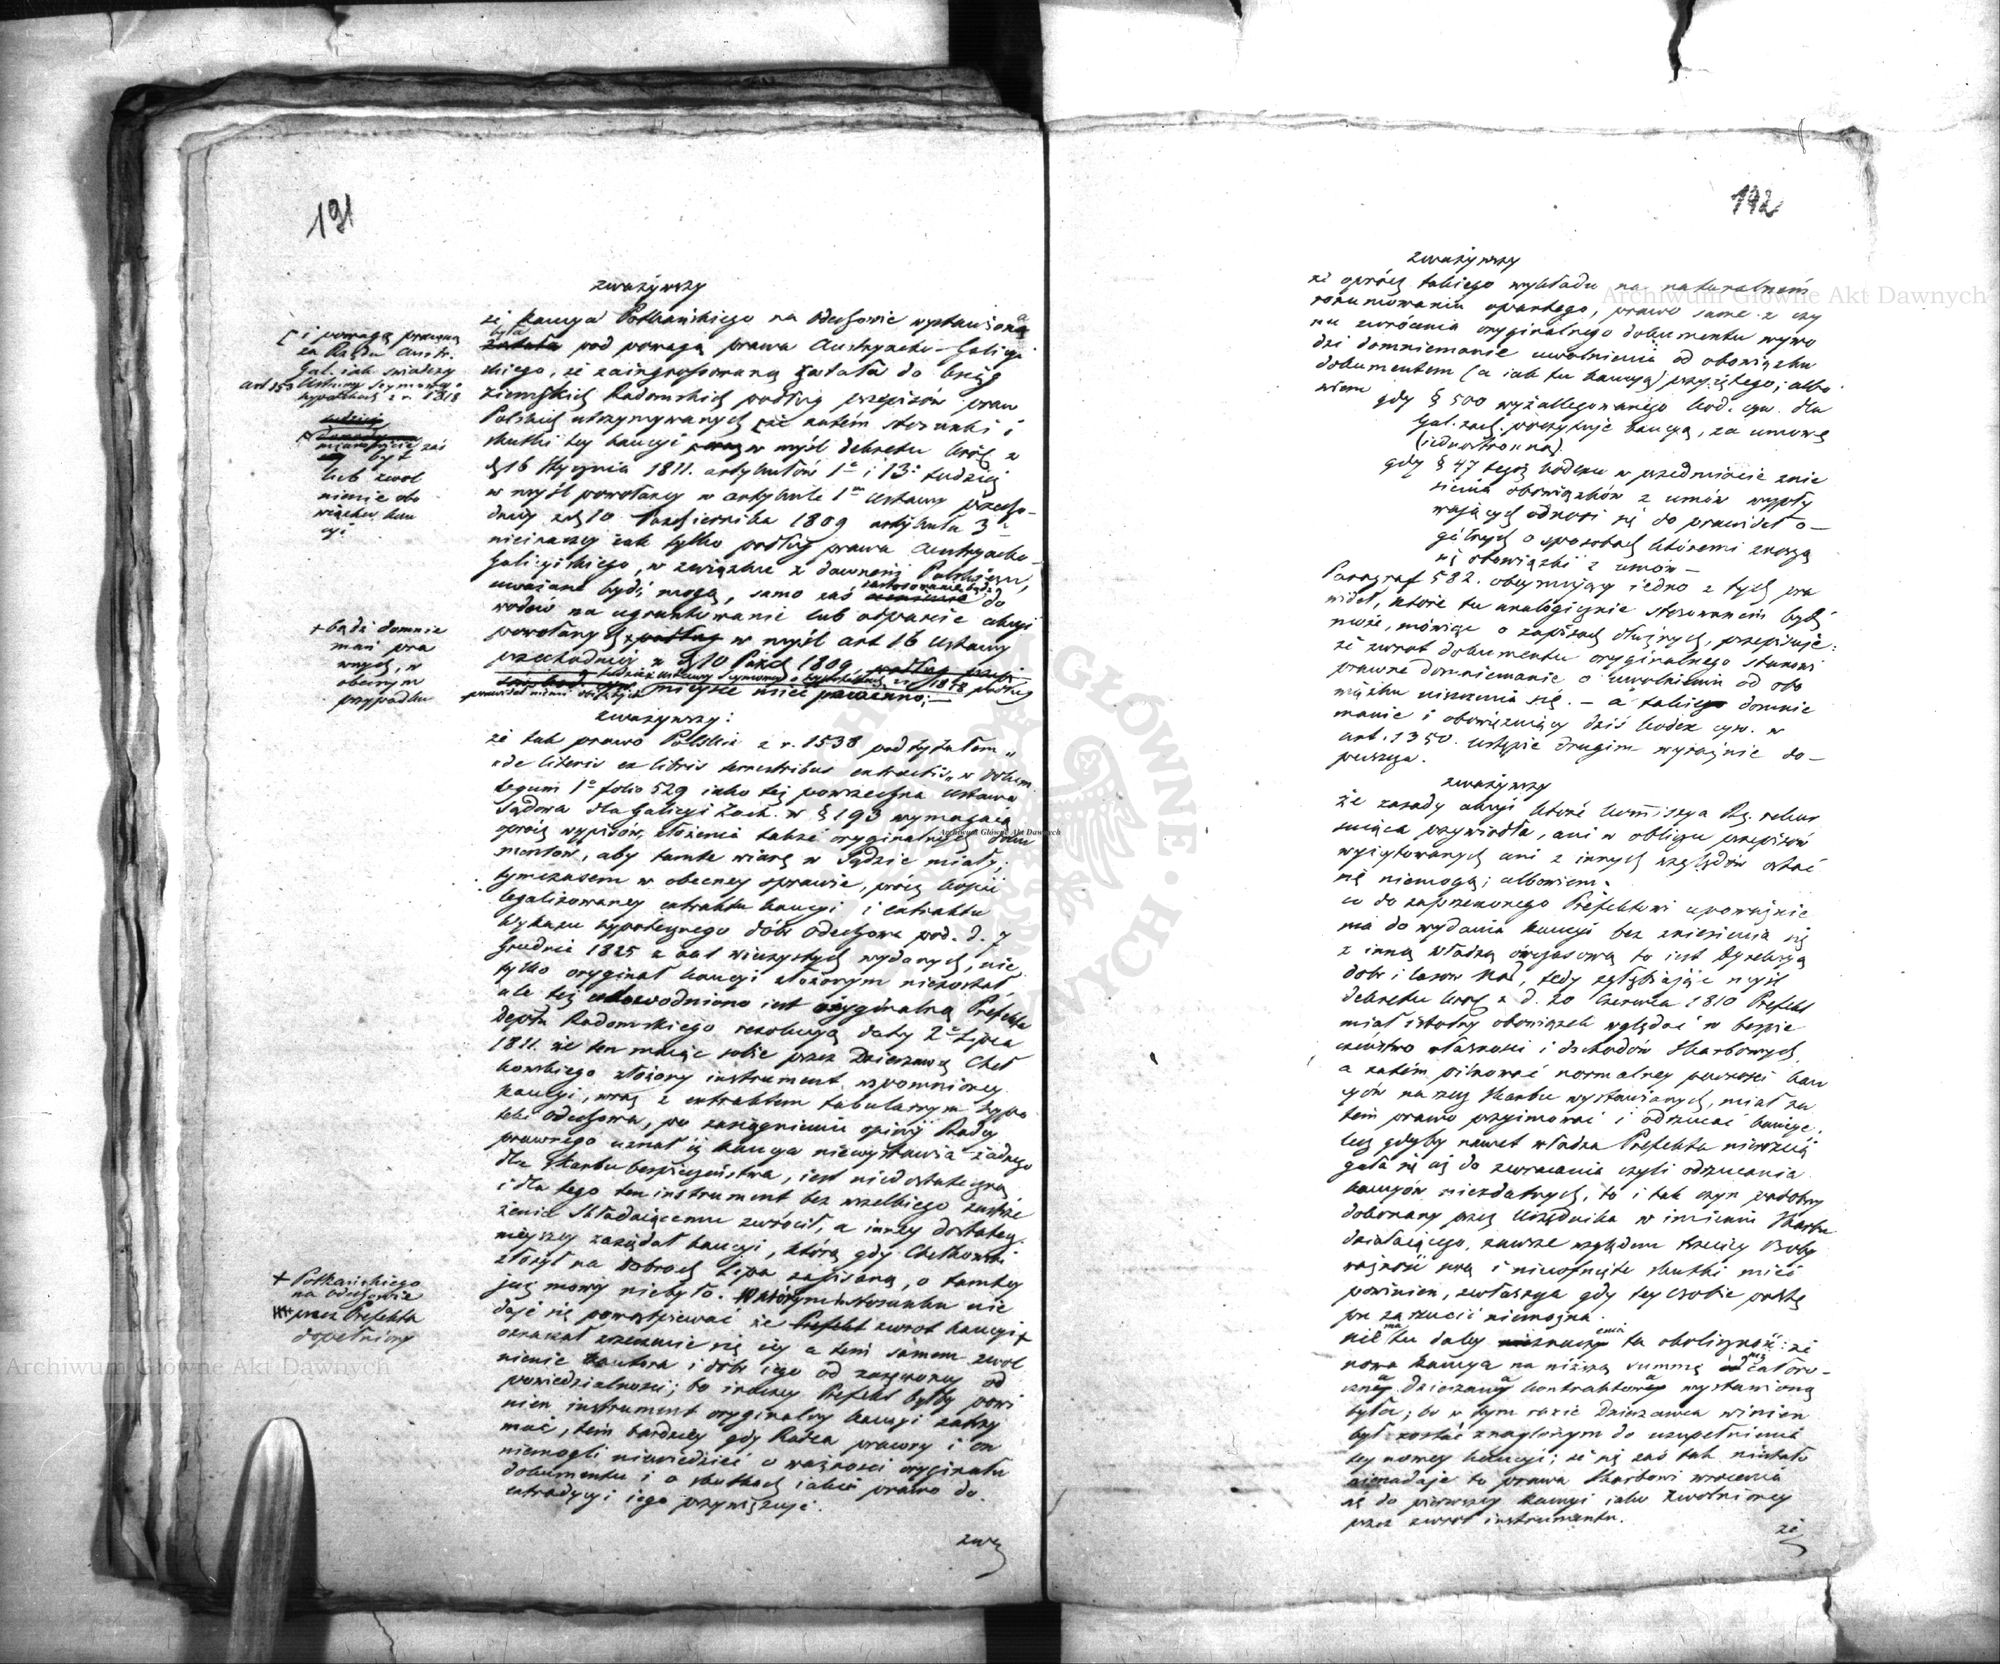 191
zważywszy
że kaucya Potkańskiego na Odechowie wystawiona
była pod powagą prawa Austryacko-Galicyi
skiego, że zaingrossowaną została do ksiąg
Ziemskich Radomskich podług przepisów praw
Polskich utrzymywanych, że zatém stosunki i
skutki tey kaucyi w myśl dekretu Król. z
d. 16 Stycznia 1811. artykułów 1o i 13o tudzież
w myśl powołaney w artykule 1m Ustawy przecho-
dniey z d. 10 Października 1809 artykułu 3o
nieinaczej iak tylko podług prawa Austryacko-
Galicyiskiego, w związku z dawném Polskiem,
uważane bydź mogą, samo zaś zastosowanie do
wodów na ugruntowanie lub odparcie akcyi
powołanych w myśl art 16 Ustawy
przechodniey z d. 10 Paźd. 1809,
tudzież ustawy Seymowey o hypotekach z r. 1818 podług
miejsce mieć powinno;—
[ i powagą prawną
za Rządu Austr.
Gal. iak świadczy
Ustawy Seymowey o
hypotekach z r. 1818
lub zwol
nienie obo
wiązków kau
cyi
+ bądź domnie
mań pra
wnych, w
obecnym
przypadku
zważywszy:
że tak prawo Polskie z r. 1538 pod tytułem „
„de literis ex libris terrestribus extractis„ w Volum.
legum 1o folio 529 iako też powszechna Ustawa
Sądowa dla Galicyi Zach. w § 193 wymagają
oprócz wypisów, złożenia także oryginalnych doku
mentów, aby tamte wiarę w Sądzie miały;
tymczasem w obecney sprawie, prócz kopii
legalizowaney extraktu kaucyi i extraktu
Wykazu hypotecznego dóbr Odechowa pod. d. 7
Grudnia 1825 z akt wieczystych wydanych, nie
tylko oryginał kaucyi złożonym niezostał
ale też udowodniono iest oryginalną Prefekta
Deptu Radomskiego rezolucyą daty 2o Lipca
1811. że ten maiąc sobie przez Dzierżawcę Chet
kowskiego złożony instrument wspomnioney
kaucyi, wraz z extraktem tabularnym hypo
teki Odechowa, po zasięgnieniu opinii Radcy
prawnego uznał iż kaucya niewystawia żadnego
dla Skarbu bespieczeństwa, iest niedostateczną
i dla tego ten instrument bez wszelkiego zastrze
żenia składaiącemu zwrócił, a inney dostatecz.
nieyszey zażądał kaucyi, którą gdy Chetkowski
złożył na dobrach Lipa zapisaną, o tamtey
już mowy niebyło. W którym stosunku nie
daje się powątpiewać że zwrot kaucyi +
oznaczał zrzeczenie się iey a tém samem zwol
nienie kautora i dóbr iego od zaręczoney od
powiedzialności; bo inaczey Prefekt byłby powi
nien instrument oryginalny kaucyi zatrzy
mać, tém bardziey gdy Radca prawny i on
niemogli niewiedzieć o ważności oryginału
dokumentu i o skutkach iakie prawo do
extradycyi iego przywiązuje.
+ Potkańskiego
na Odechowie
przez Prefekta
dopełniony
zwa
192
zważywszy
że oprócz takiego wykładu na naturalném
rozumowaniu opartego, prawo same z czy
nu zwrócenia oryginalnego dokumentu wywo
dzi domniemanie uwolnienia od obowiązku
dokumentem (a iak tu kaucyą) przyiętego; albo
wiem gdy § 500 wyżallegowanego Kod. cyw. dla
Gal. zach. poczytuje kaucyą, za umowę
(iednostronną)
gdy § 47 tegoż kodexu w przedmiocie znie
sienia obowiązków z umów wypły
waiących odnosi się do prawideł o-
gólnych o sposobach któremi znoszą
się obowiązki z umów—
Paragraf 582. obeymuiący iedno z tych pra
wideł, które tu analogicznie stosowaném bydź
może, mówiąc o zapisach dłużnych, przepisuje:
że zwrot dokumentu oryginalnego stanowi
prawne domniemanie o uwolnieniu od obo
wiązku uiszczenia się. — a takież domnie
manie i obowiązujący dziś Kodex cyw. w
art. 1350. ustępie drugim wyraźnie do-
puszcza.
zważywszy
że zasady akcyi które Kommissya Rz. rekur
suiąca przywiodła, ani w obliczu przepisów
wycytowanych ani z innych względów ostać
się niemogą; albowiem.
co do zaprzeczonego Prefektowi upoważnie
nia do wydania kaucyi bez zniesienia się
z inną Władzą ówczasową to iest Dyrekcyą
dóbr i lasów Nar., tedy zgłębiając myśl
dekretu Król. z d. 20 Czerwca 1810 Prefekt
miał istotny obowiązek wglądać w bespie
czeństwo własności i dochodów Skarbowych,
a zatém pilnować normalney pewności kau
cyów na rzecz Skarbu wystawianych, miał za
tém prawo przyimować i odrzucać kaucye,
lecz gdyby nawet władza Prefekta nierozcią
gała się aż do zwracania czyli odrzucania
kaucyów niezdatnych, to i tak czyn podobny
dokonany przez Urzędnika w imieniu Skarbu
działaiącego, zawsze względem trzeciey Osoby
ważność swą i nieofnięte skutki mieć
powinien, zwłaszcza gdy tey osobie podstę
pu zarzucić niemożna.
nie ma tu daley znaczenia ta okoliczność: że
nowa kaucya na niższą summę od całoro-
czney dzierżawy kontraktowey wystawioną
była; bo w tym razie Dzierżawca winien
był zostać znaglonym do uzupełnienia
tey nowey kaucyi; że się zaś tak niestało
nienadaje to prawa Skarbowi wrócenia
się do pierwszey kaucyi iako zwolnioney
przez zwrot instrumentu.
że
Archiwum Główne Akt Dawnych
Archiwum Główne Akt Dawnych
Archiwum Główne Akt Dawnych